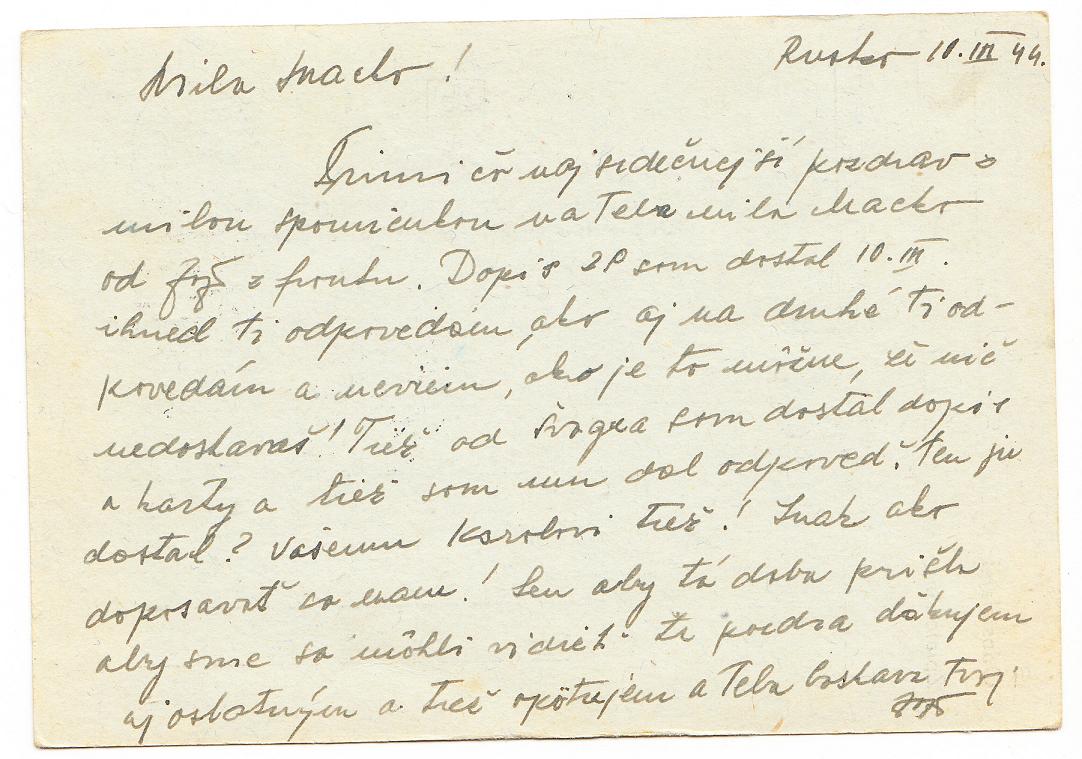 Rusko 10.III 44.
Milá Macko!
Primi čo najsrdečnejší pozdrav s
milou spomienkou na Teba milá Macko
od z frontu. Dopis 28 som dostal 10.III.
ihneď ti odpovedám, ako aj na druhé ti od-
povedám a neviem, ako je to možné, že nič
nedostavaš! Tiež od švagra som dostal dopis
a karty a tiež som mu dal odpoveď. Ten ju
dostal? Vašemu Karolovi tiež! Inak ako
doposavaď sa mam! Len aby tá doba prišla
aby sme sa mohli vidieť. Za pozdra ďakujem
aj ostatným a tiež opätujem a Teba boskava tvoj